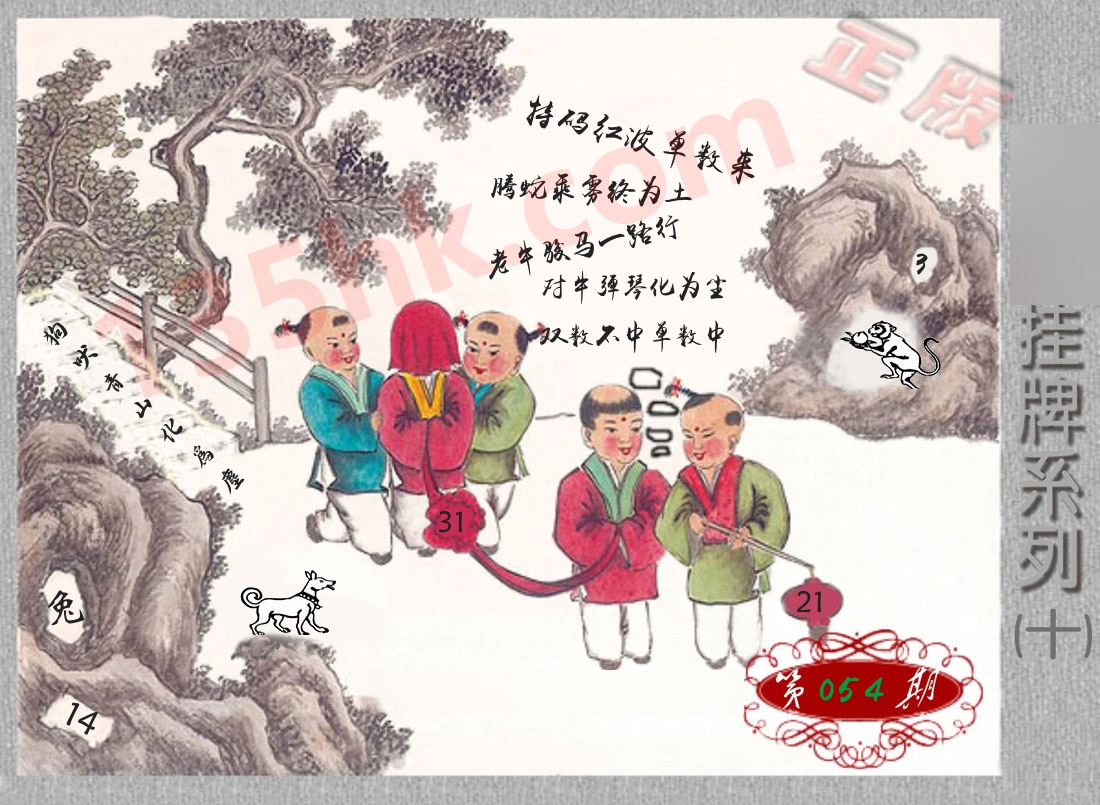 正版
特码红波单数来
腾蛇乘雾终为土
老牛骏马一路行
对牛弹琴化为尘
双数不中单数中
135hk.com
3
狗吠青山化為塵
口
吅
吅
31
兔
21
14
第054期
挂牌系列(十)